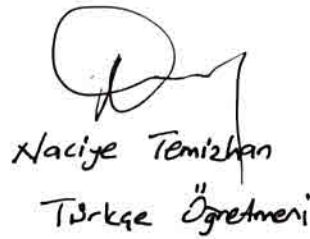 Naciye Temizhan
Türkçe Öğretmeni